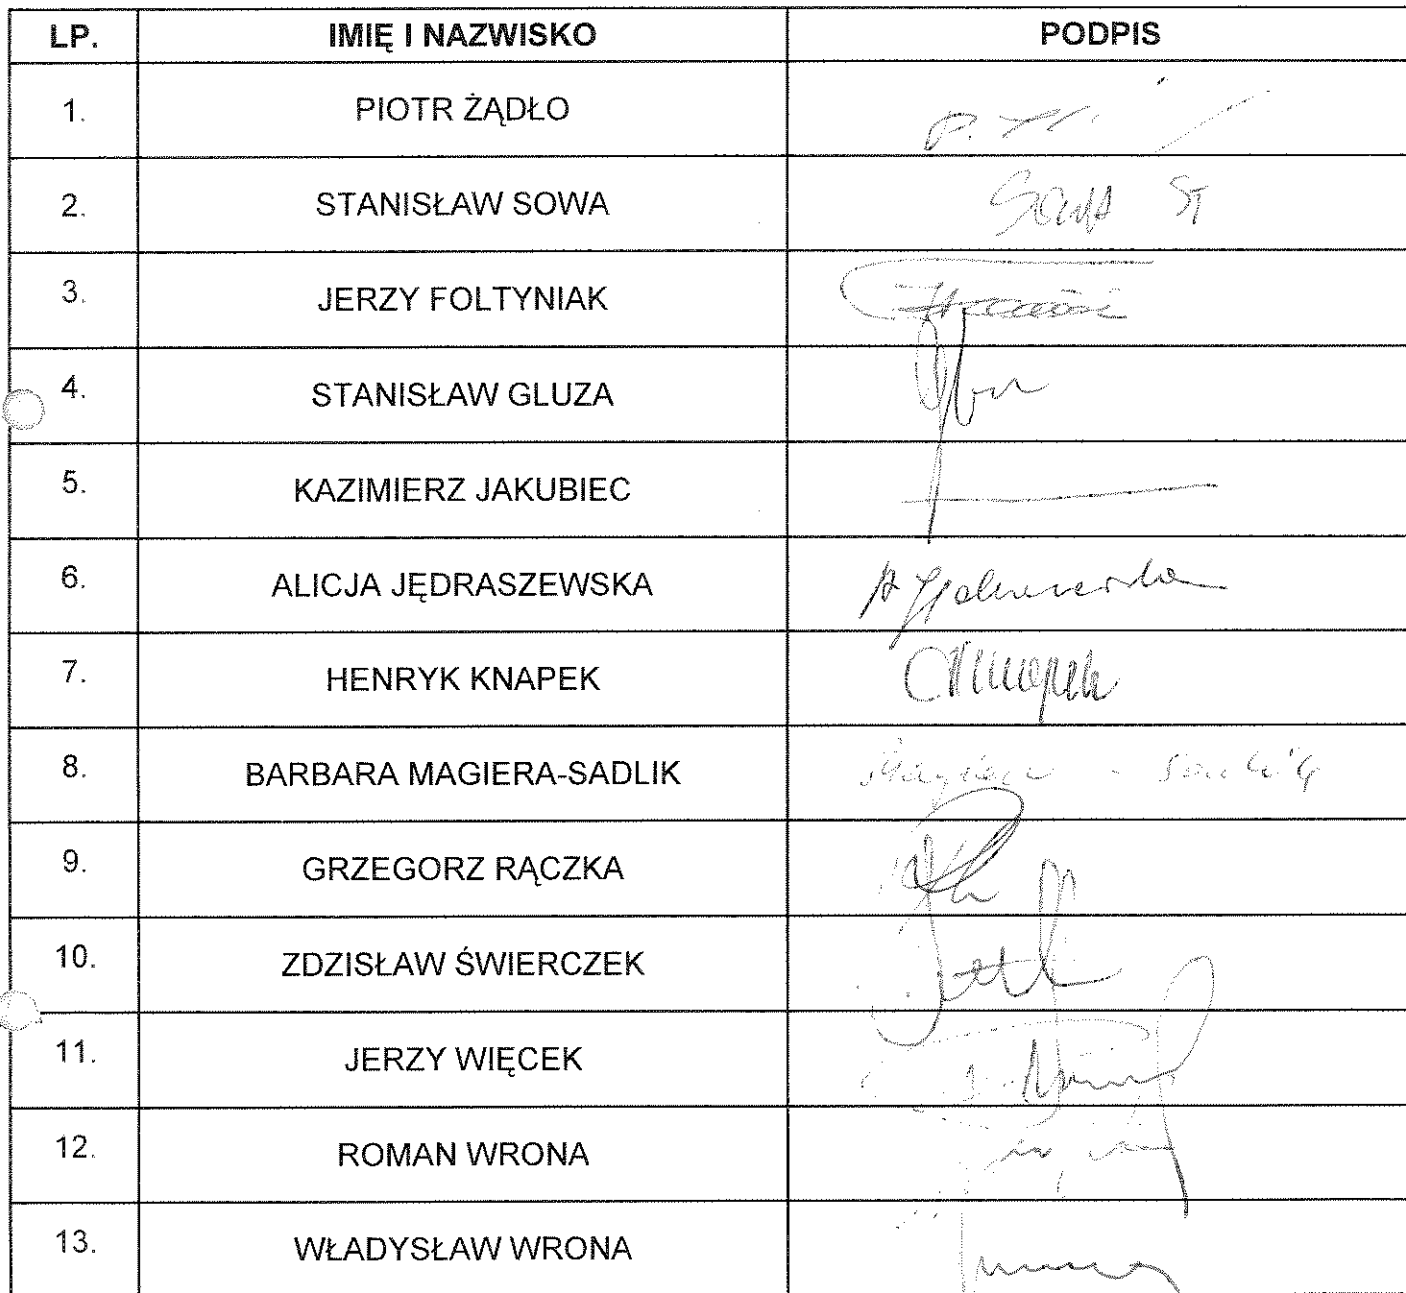 LP. IMIĘ I NAZWISKO PODPIS
1. PIOTR ŻĄDŁO
2. STANISŁAW SOWA Sowa St
3. JERZY FOLTYNIAK
4. STANISŁAW GLUZA
5. KAZIMIERZ JAKUBIEC
6. ALICJA JĘDRASZEWSKA
7. HENRYK KNAPEK
8. BARBARA MAGIERA-SADLIK Magiera - Sadlik
9. GRZEGORZ RĄCZKA
10. ZDZISŁAW ŚWIERCZEK
11. JERZY WIĘCEK
12. ROMAN WRONA
13. WŁADYSŁAW WRONA